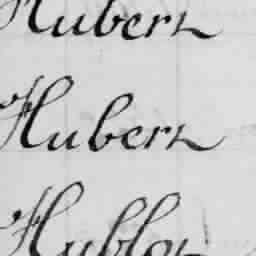 Hubert
Hubert
Hublot